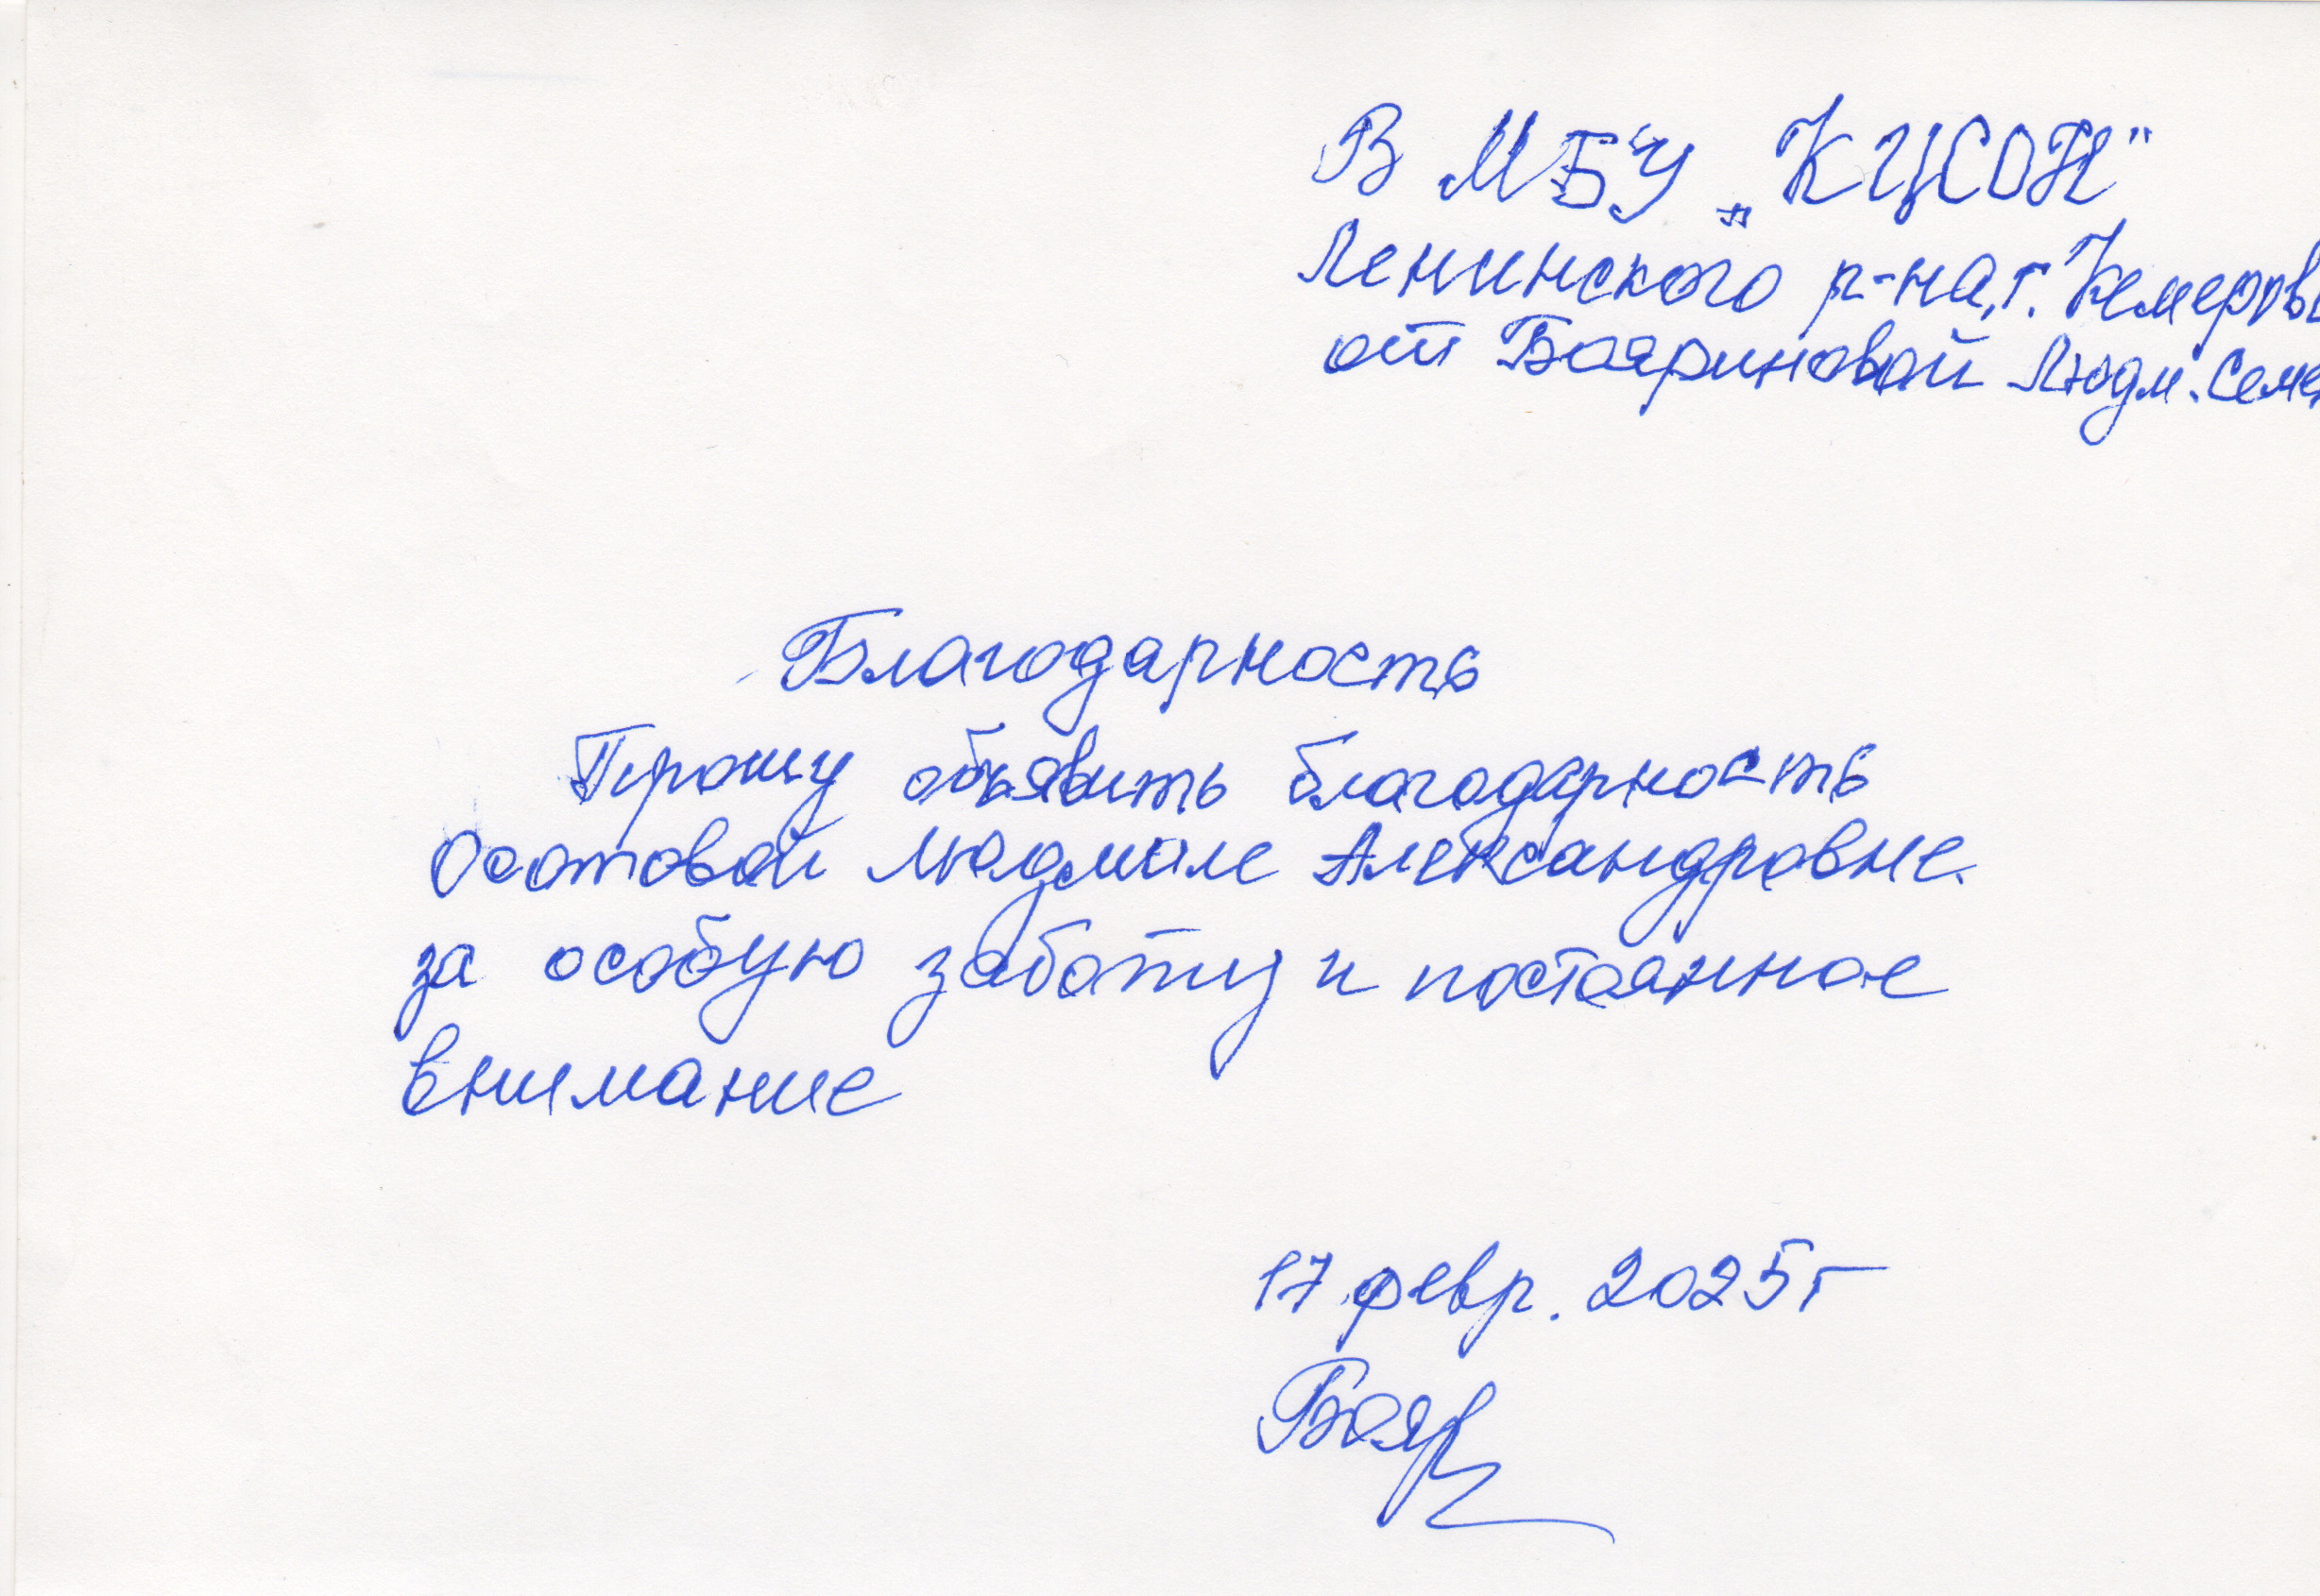 В МБУ „КЦСОН"
Ленинского р-на, г. Кемеров
от Бояриновой Людм. Семе
Благодарность
Прошу объявить благодарность
Осотовой Людмиле Александровне.
за особую заботу и постоянное
внимание
17 февр. 2025г
Бояр